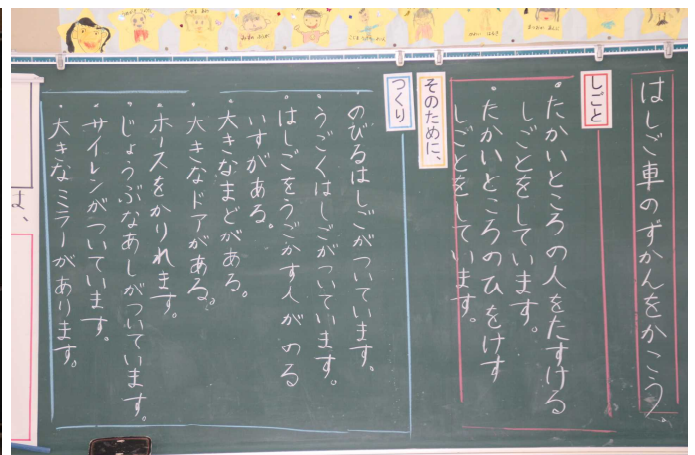 はしご車のずかんをかこう。
しごと
・たかいところの人をたすける
しごとをしています。
・たかいところのひをけす
しごとをしています。
そのために、
つくり
・のびるはしごがついています。
・うごくはしごがついています。
・はしごをうごかす人がのる
いすがある。
・大きなまどがある。
・大きなドアがある。
・ホースをかりれます。
・じょうぶなあしがついています。
・サイレンがついています。
・大きなミラーがあります。
は、